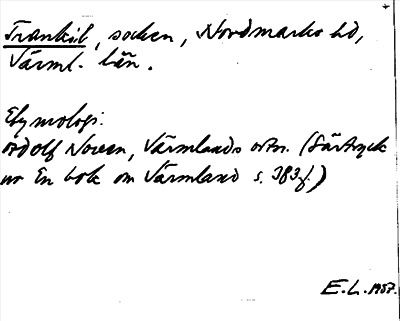 Trankil, socken, Nordmarks hd,
Värml. län.
Etymologi:
Adolf Noreen, Värmlands ortn. (Särtryck
ur En bok om Värmland s. 383f.)
E.L. 1957.